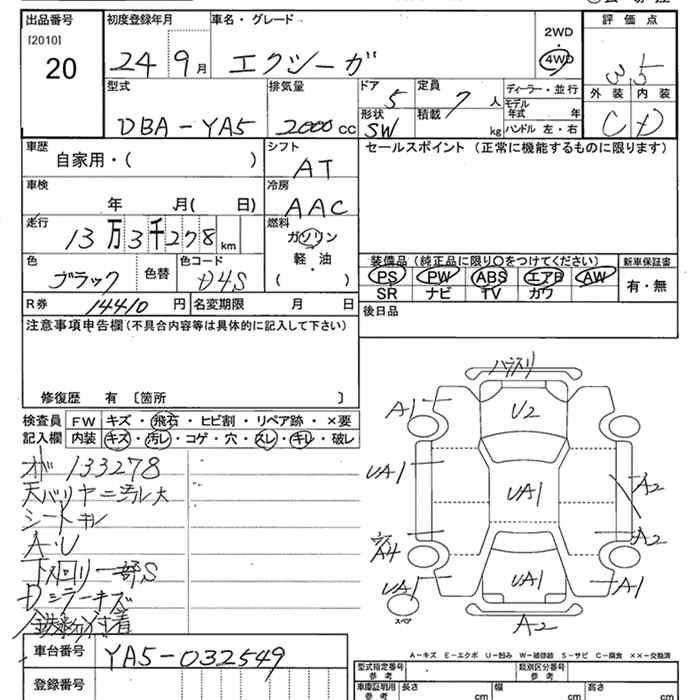 出品番号 初度登録年月 車名・グレード 2WD 評価点
[2010] 20 24 9月 エクシーガ 4WD 3.5
型式 排気量 ドア 定員 ディーラー・並行 外装 内装
DBA-YA5 2000cc 5 7人 モデル年式 年 C D
形状 SW 積載 kg ハンドル 左・右
車歴 シフト セールスポイント (正常に機能するものに限ります)
自家用・( ) AT
車検 冷房
年 月( 日) AAC
走行 燃料
13万3千278km ガソリン
軽・油
( )
色 色替 色コード 装備品 (純正品に限り〇をつけてください) 新車保証書
ブラック D4S PS PW ABS エアB AW 有・無
SR ナビ TV カワ
R券 14410円 名変期限 月 日 後日品
注意事項申告欄 (不具合内容等は具体的に記入して下さい)
修復歴 有 〔箇所 〕
検査員 FW キズ・飛石・ヒビ割・リペア跡・×要
記入欄 内装 キズ・汚レ・コゲ・穴・スレ・キレ・破レ
オド 133278
天バリヤニ汚レ大
シートキレ
A・U
下回り一部S
Dシラーキズ
鉄粉付着
U2
A1
UA1 UA1 A2
A2
A4
UA1 UA1 A1
スペア A2
A-キズ E-エクボ U-凹み W-補修跡 S-サビ C-腐食 ××-交換済
車台番号 YA5-032549 型式指定番号 参考 類別区分番号 参考
登録番号 車庫証明用 参考 長さ cm 幅 cm 高さ cm